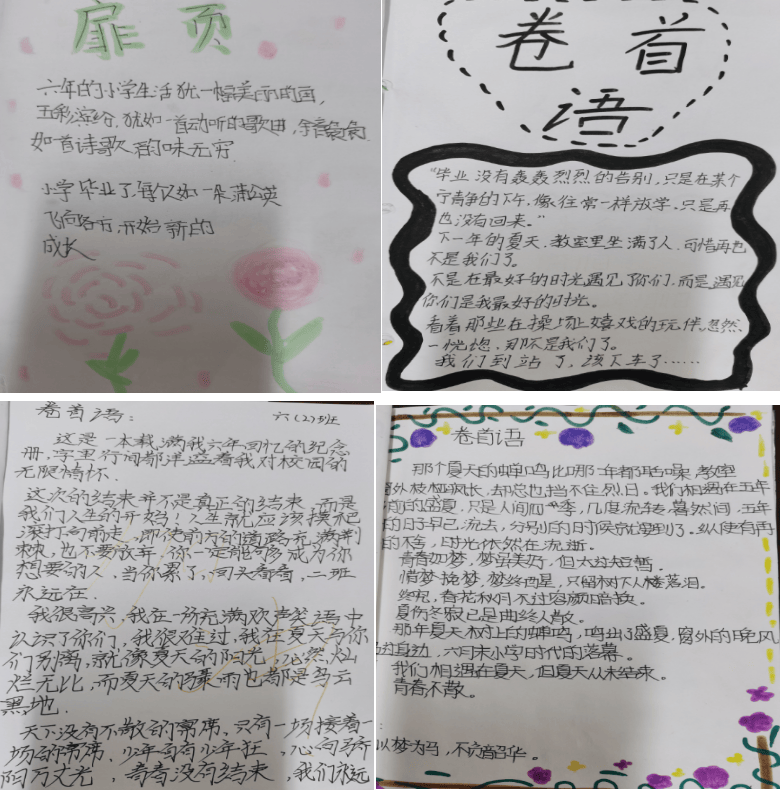 扉页
六年的小学生活犹一幅美丽的画,
五彩滨纷,犹如一首动听的歌曲,余音袅袅
如首诗歌,回味无穷
小学毕业了,每
飞向各方,开始新的
成长
卷首
语
“毕业没有轰轰烈烈的告别,只是在某个
宁静的下午,像往常一样放学.只是再
也没有回来。”
下一年的夏天.教室里坐满了人.可惜再也
不是我们了。
不是在最好的时光遇见了你们,而是遇见
你们是我最好的时光。
看着那些在操场上嬉戏的玩伴.忽然
一恍惚.那不是我们了。
我们到站了,该下车了……
卷首语:
六(2)班
这是一本载满我六年回忆的纪念
册,字里行间都洋溢着我对校园的
无限情怀.
这次的结束并不是真正的结束,而是
我们人生的开始,人生就应该摸爬
滚打向前走,即使前方的道路充满荆
棘,也不要放弃,你一定能够成为你
想要的人,当你累了,回头看看,二班
永远在.
我很高兴,我在一所充满欢声笑语中
认识了你们,我很难过,我在夏天与你
们别离,就像夏天的阳光,必然灿
烂无比,而夏天的暴雨也都是乌云
黑地.
天下没有不散的宴席、只有一场接着一
场的宴席.少年自有少年狂,心向骄
阳万丈光,青春没有结束,我们永远
卷首语
那个夏天的蝉鸣比哪年都聒噪,教室
窗外枝桠疯长,却总也挡不住烈日。我们相遇在五年
前的盛夏,只是人间四季,几度流转,蓦然间,五年
的日子早已流去,分别的时候就要到了。纵使有再
的不舍,时光依然在流逝。
青春如梦,梦虽美好,但太过短暂。
惜梦挽梦,梦终会星,只留树下人楼落泪。
终究,春花秋月不过容颜暗换。
夏伤冬寂已是曲终人散。
那年夏天树上的蝉鸣,鸣出了盛夏,窗外的晚风
的身边,六月末小学时代的落幕。
我们相遇在夏天,但夏天从未结束。
青春不散。
以梦为马,不负韶华。